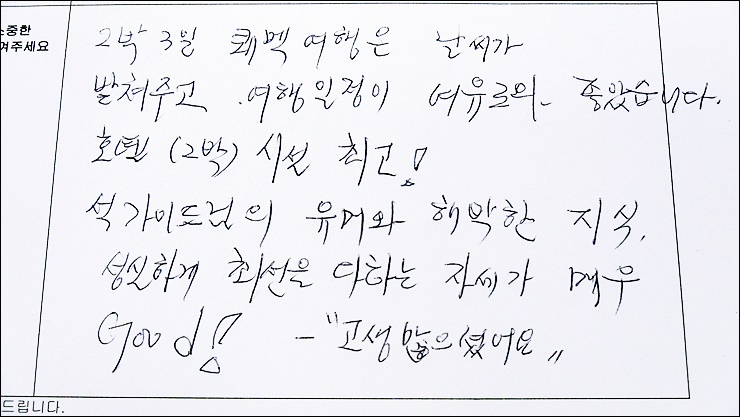 소중한
겨주세요
2박 3일 퀘벡 여행은 날씨가
받쳐주고, 여행일정이 여유로와 좋았습니다.
호텔 (2박) 시설 최고!
석가이드님의 유머와 해박한 지식,
성실하게 최선을 다하는 자세가 매우
Good! - "고생 많으셨어요"
드립니다.